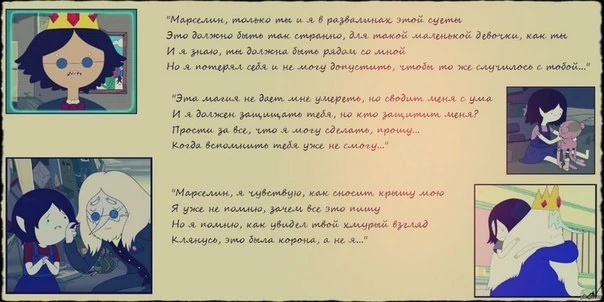 "Марселин, только ты и я в развалинах этой суеты
Это должно быть так странно, для такой маленькой девочки, как ты
И я знаю, ты должна быть рядом со мной
Но я потерял себя и не могу допустить, чтобы то же случилось с тобой..."
"Эта магия не дает мне умереть, но сводит меня с ума
И я должен защищать тебя, но кто защитит меня?
Прости за все, что я могу сделать, прошу...
Когда вспомнить тебя уже не смогу..."
"Марселин, я чувствую, как сносит крышу мою
Я уже не помню, зачем все это пишу
Но я помню, как увидел твой хмурый взгляд
Клянусь, это была корона, а не я..."